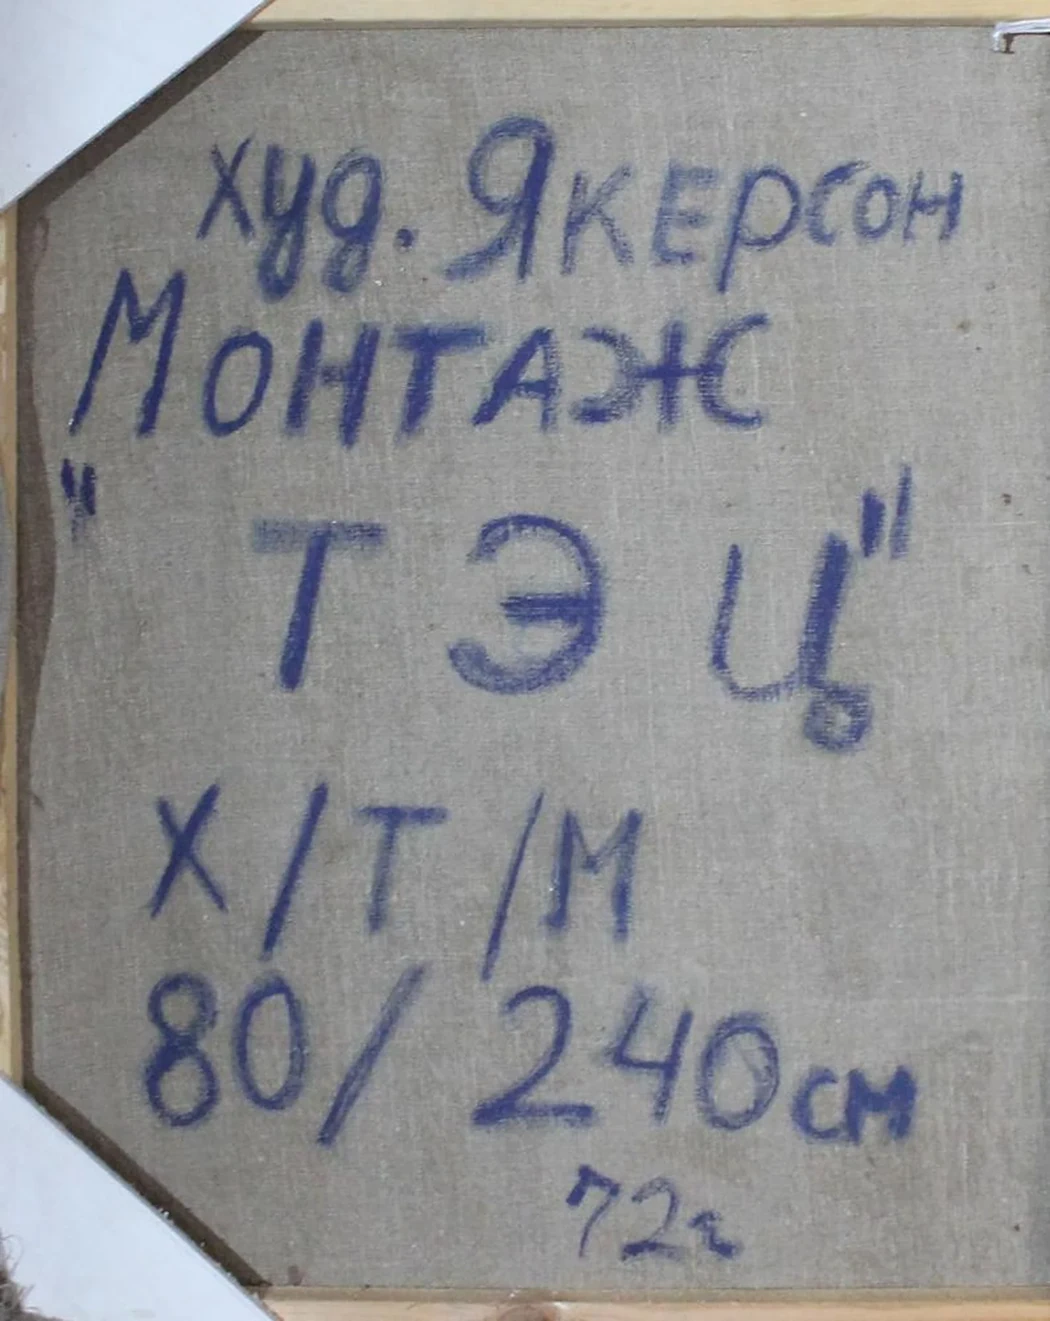 худ. Якерсон
Монтаж
"ТЭЦ"
Х/Т/М
80/240см
72г